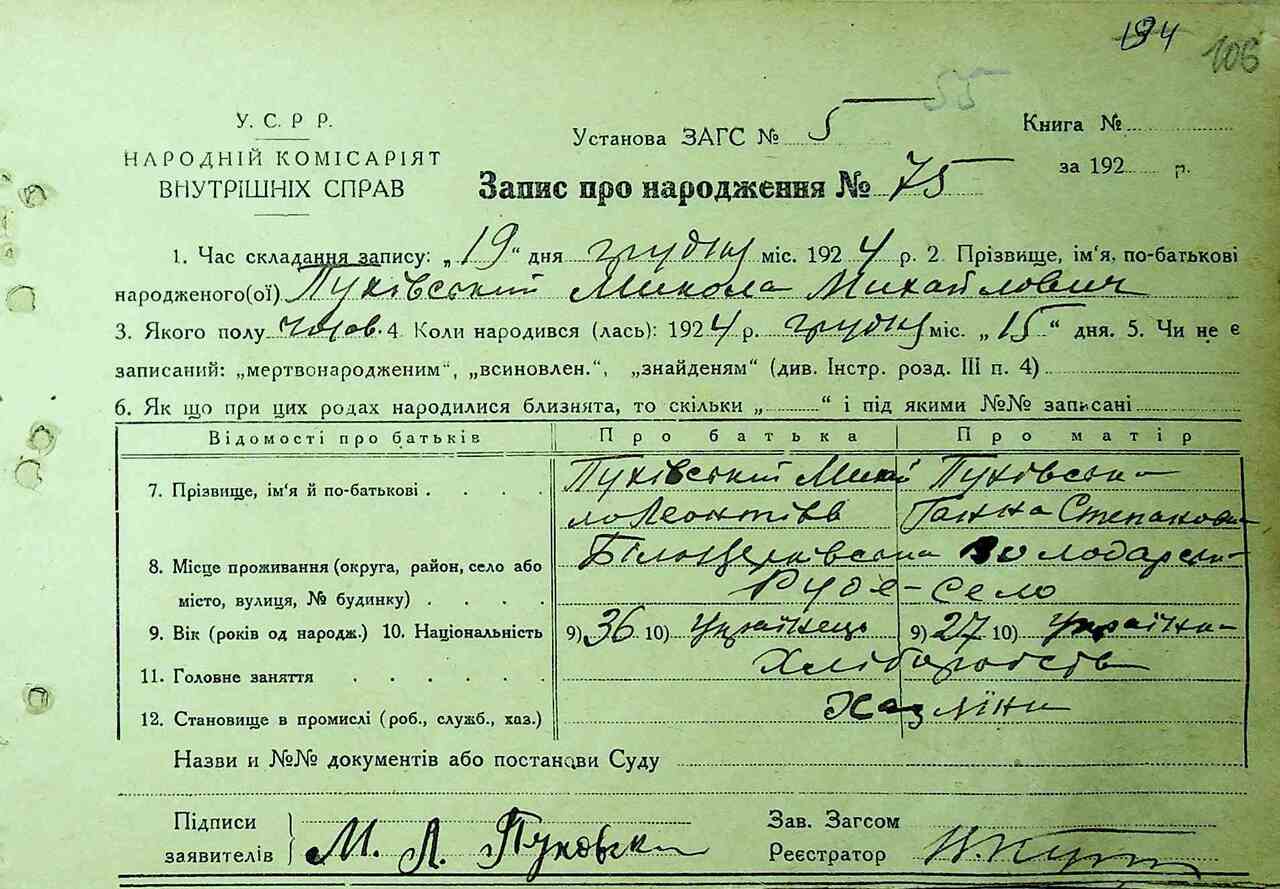 194
106
55
У. С. Р Р.
НАРОДНІЙ КОМІСАРІЯТ
ВНУТРІШНІХ СПРАВ
Установа ЗАГС № 5
Книга №
за 192 р.
Запис про народження № 75
1. Час складання запису: „19“ дня грудня міс. 1924 р. 2. Прізвище, ім'я, по-батькові
народженого(ої) Пуківський Микола Михайлович
3. Якого полу чолов. 4. Коли народився (лась): 1924 р. грудня міс. „15“ дня. 5. Чи не є
записаний: „мертвонародженим“, „всиновлен.“, „знайденям“ (див. Інстр. розд. III п. 4)
6. Як що при цих родах народилися близнята, то скільки „ “ і під якими №№ записані
Відомості про батьків Про батька Про матір
7. Прізвище, ім'я й по-батькові Пуківський Михай Пуківська
ло Леонтієв Ганна Степанова
8. Місце проживання (округа, район, село або Білоцерківська Володарськ
місто, вулиця, № будинку) Рудє-село
9. Вік (років од народж.) 10. Національність 9) 36 10) Українець 9) 27 10) Українка
11. Головне заняття Хліборобств
12. Становище в промислі (роб., служб., хаз.) Хаз
Назви и №№ документів або постанови Суду
Підписи
заявителів М. Л. Пуковськ
Зав. Загсом
Реєстратор